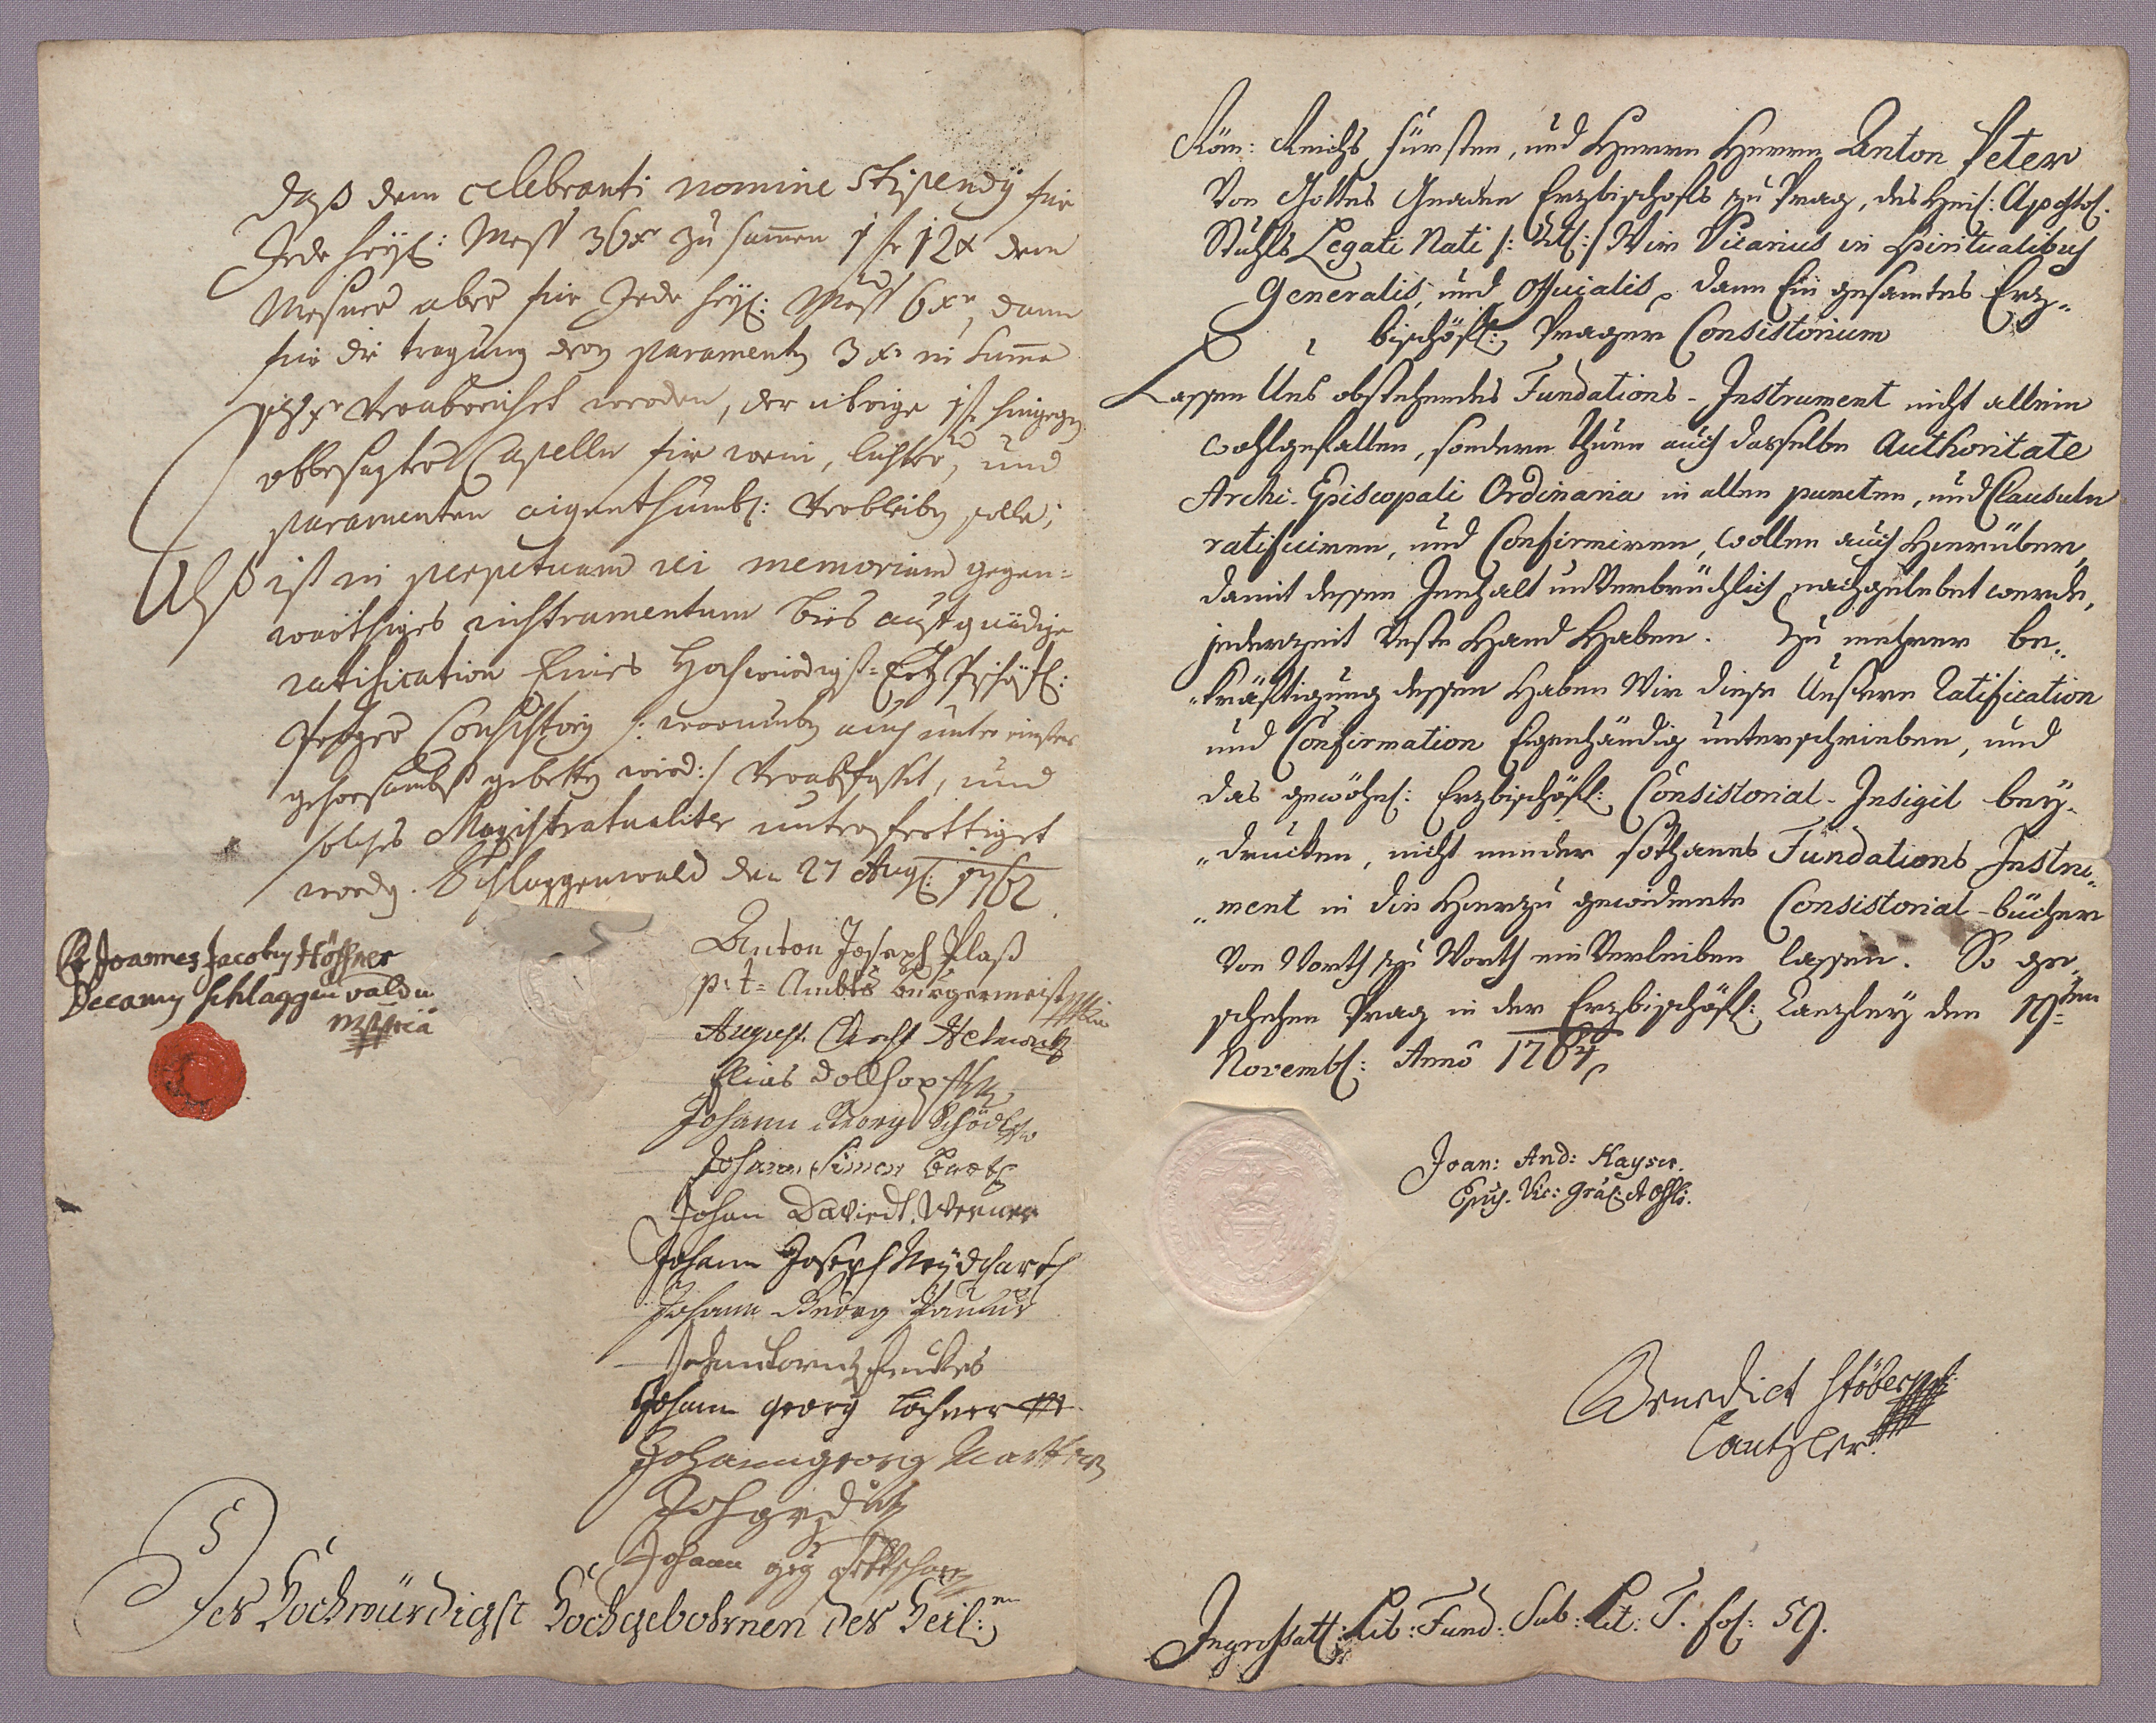 daß dem celebranti nomine stipendÿ für
Jede heÿl: Mess 36xr zu samen 1 fr 12x dem
Mesner aber für Jede heÿl: Mess 6xr, dann
für die tragung deren paramenten 3 xr in Summa
verabreichet werden, der übrige 1 fr hingegen
obbesagter Capelln für wein, lichter, und
paramenten eigenthumbl: verbleiben solle;
Alß ist in perpetuam rei memoriam gegen=
wärthiges instrumentum bies auf gnädige
ratification Eines Hochwürdigst= Ertz Pischöfl:
Prager Consistorÿ /: warumben auch unter einsten
gehorsambst gebetten wird:/ verabfasset, und
solches Magistratualiter unterferttiget
worden. Schlaggenwald den 27 Aug: 1762
Joannes Jacobus Höffner
Decanus Schlaggenvaldu
mppria
Anton Joseph Plaß
p: t= Ambts burgermeister
August
Elias Dollhopf
Johann Georg Schödl
Johann Simon
Johan Daviedt Werner
Johann Joseph Neÿdhart
Johann Georg
Johann georg Lochner
Johann georg
Johann
Des Hochwürdigst Hochgebohrnen des Heil:en
Röm: Reichs Fürsten, und Herrn Herrn Anton Peter
Von Gottes Gnaden Erzbischofs zu Prag, des Heil: Apostol:
Stuhls Legati Nati /: Titl: / Wir Vicarius in Spiritualibus
Generalis, und Officialis, dann Ein gesamtes Erz-
bischöfl: Prager Consistorium
Lassen Uns obstehendes Fundations-Instrument nicht allein
wohlgefallen, sondern thuen auch dasselbe Authoritate
Archi-Episcopali Ordinaria in allen puncten, und Clausuln
ratificiren, und Confirmiren, wollen auch Hierüber,
damit dessen Innhalt unverbrüchlich nachgelebet werde,
jederzeit Veste Hand Haben. Zu mehrer be-
kräftigung dessen Haben Wir diese Unsere Ratification
und Confirmation Eigenhändig unterschrieben, und
das gewöhnl: Erzbischöfl: Consistorial-Insigil bey-
drucken, nicht minder sothanes Fundations Instru-
ment in die Hierzu gewidmete Consistorial-bücher
Von Worth zu Worth einVerleiben lassen. So ge-
schehen Prag in der Erzbischöfl: Canzley den 19ten
Novembl: Anno 1764
Joan: And: Kayser.
Epus. Vic: Gräl: et Offlis:
Benedict Stöber
Cantzler
Ingrossatl: Lib: Fund: Sub: Lit: T. fol: 59.